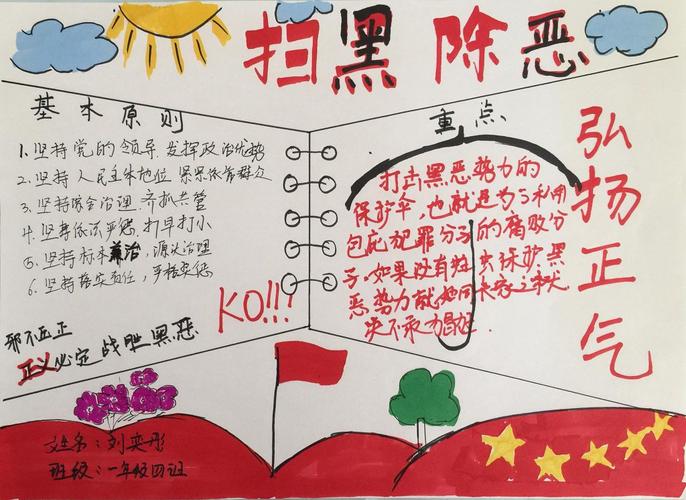 扫黑除恶
基本原则
1.坚持党的领导,发挥政治优势
2.坚持人民主体地位,紧紧依靠群众
3.坚持综合治理,齐抓共管
4.坚持依法严惩,打早打小
5.坚持标本兼治,源头治理
6.坚持落实责任,严格奖惩
KO!!!
邪不压正
正义必定战胜黑恶
重点
打击黑恶势力的
保护伞,也就是参与利用
包庇犯罪分子的腐败分
子。如果没有
保护黑
恶势力就如同
决不
弘扬正气
姓名:刘奕彤
班级:一年级四班